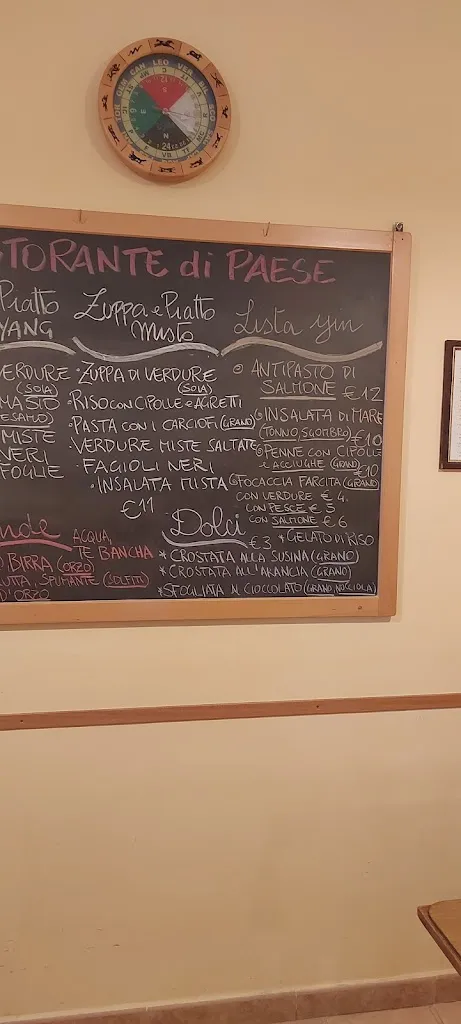 GEM CAN LEO VER BIL SCO
TORANTE di PAESE
Piatto
YANG
VERDURE
(SOIA)
MISTE
NERI
FOGLIE
Zuppa e Piatto
Misto
• ZUPPA DI VERDURE
(SOIA)
• RISO CON CIPOLLE e AGRETTI
• PASTA CON I CARCIOFI (GRANO)
• VERDURE MISTE SALTATE
• FAGIOLI NERI
• INSALATA MISTA
€11
Lista yin
ANTIPASTO DI
SALMONE €12
INSALATA DI MARE
(TONNO, SGOMBRO) €10
PENNE CON CIPOLLE
e ACCIUGHE (GRANO)
€10
FOCACCIA FARCITA (GRANO)
CON VERDURE € 4.
CON PESCE € 5
CON SALMONE € 6
nde
ACQUA,
TÈ BANCHA
BIRRA (ORZO)
SPUMANTE (SOLFITI)
D'ORZO
Dolci
€3 * GELATO DI RISO
* CROSTATA ALLA SUSINA (GRANO)
* CROSTATA ALL'ARANCIA (GRANO)
* SFOGLIATA AL CIOCCOLATO (GRANO, NOCCIOLA)